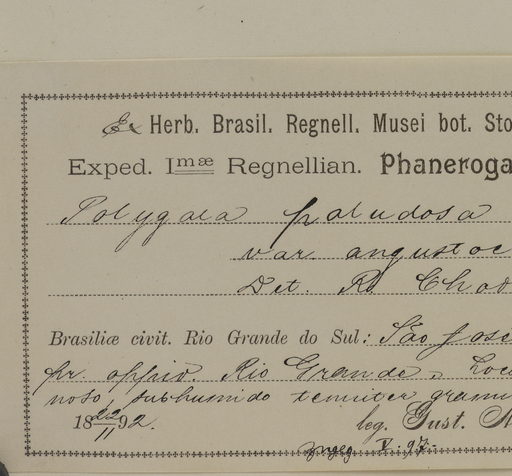 Ex Herb. Brasil. Regnell. Musei bot. Sto
Exped. Imæ Regnellian. Phaneroga
Polygala paludosa
var. angustoe
Det. R. Chod
Brasiliæ civit. Rio Grande do Sul: São Jose
pr. oppid. Rio Grande, Loco
noso, subhumido leniter gramin
18 22/11 92. leg. Gust. M
V. 97.